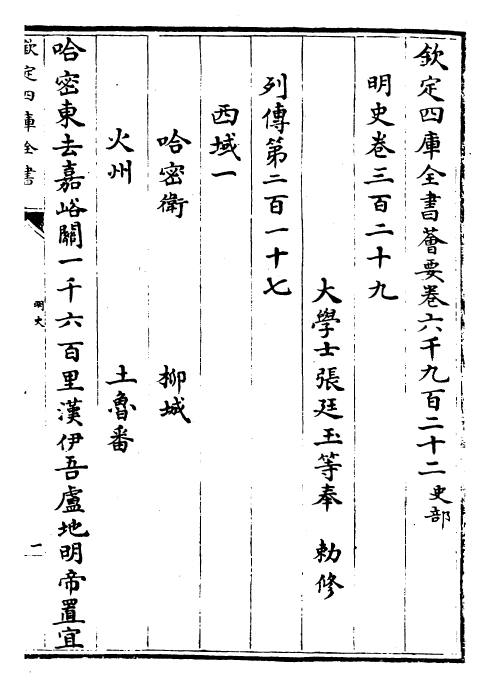 欽定四庫全書薈要卷六千九百二十二 史部
明史卷三百二十九
大學士張廷玉等奉 勅修
列傳第二百一十七
西域一
哈密衛 柳城
火州 土魯番
哈密東去嘉峪關一千六百里漢伊吾盧地明帝置宜
欽定四庫全書
明史
一